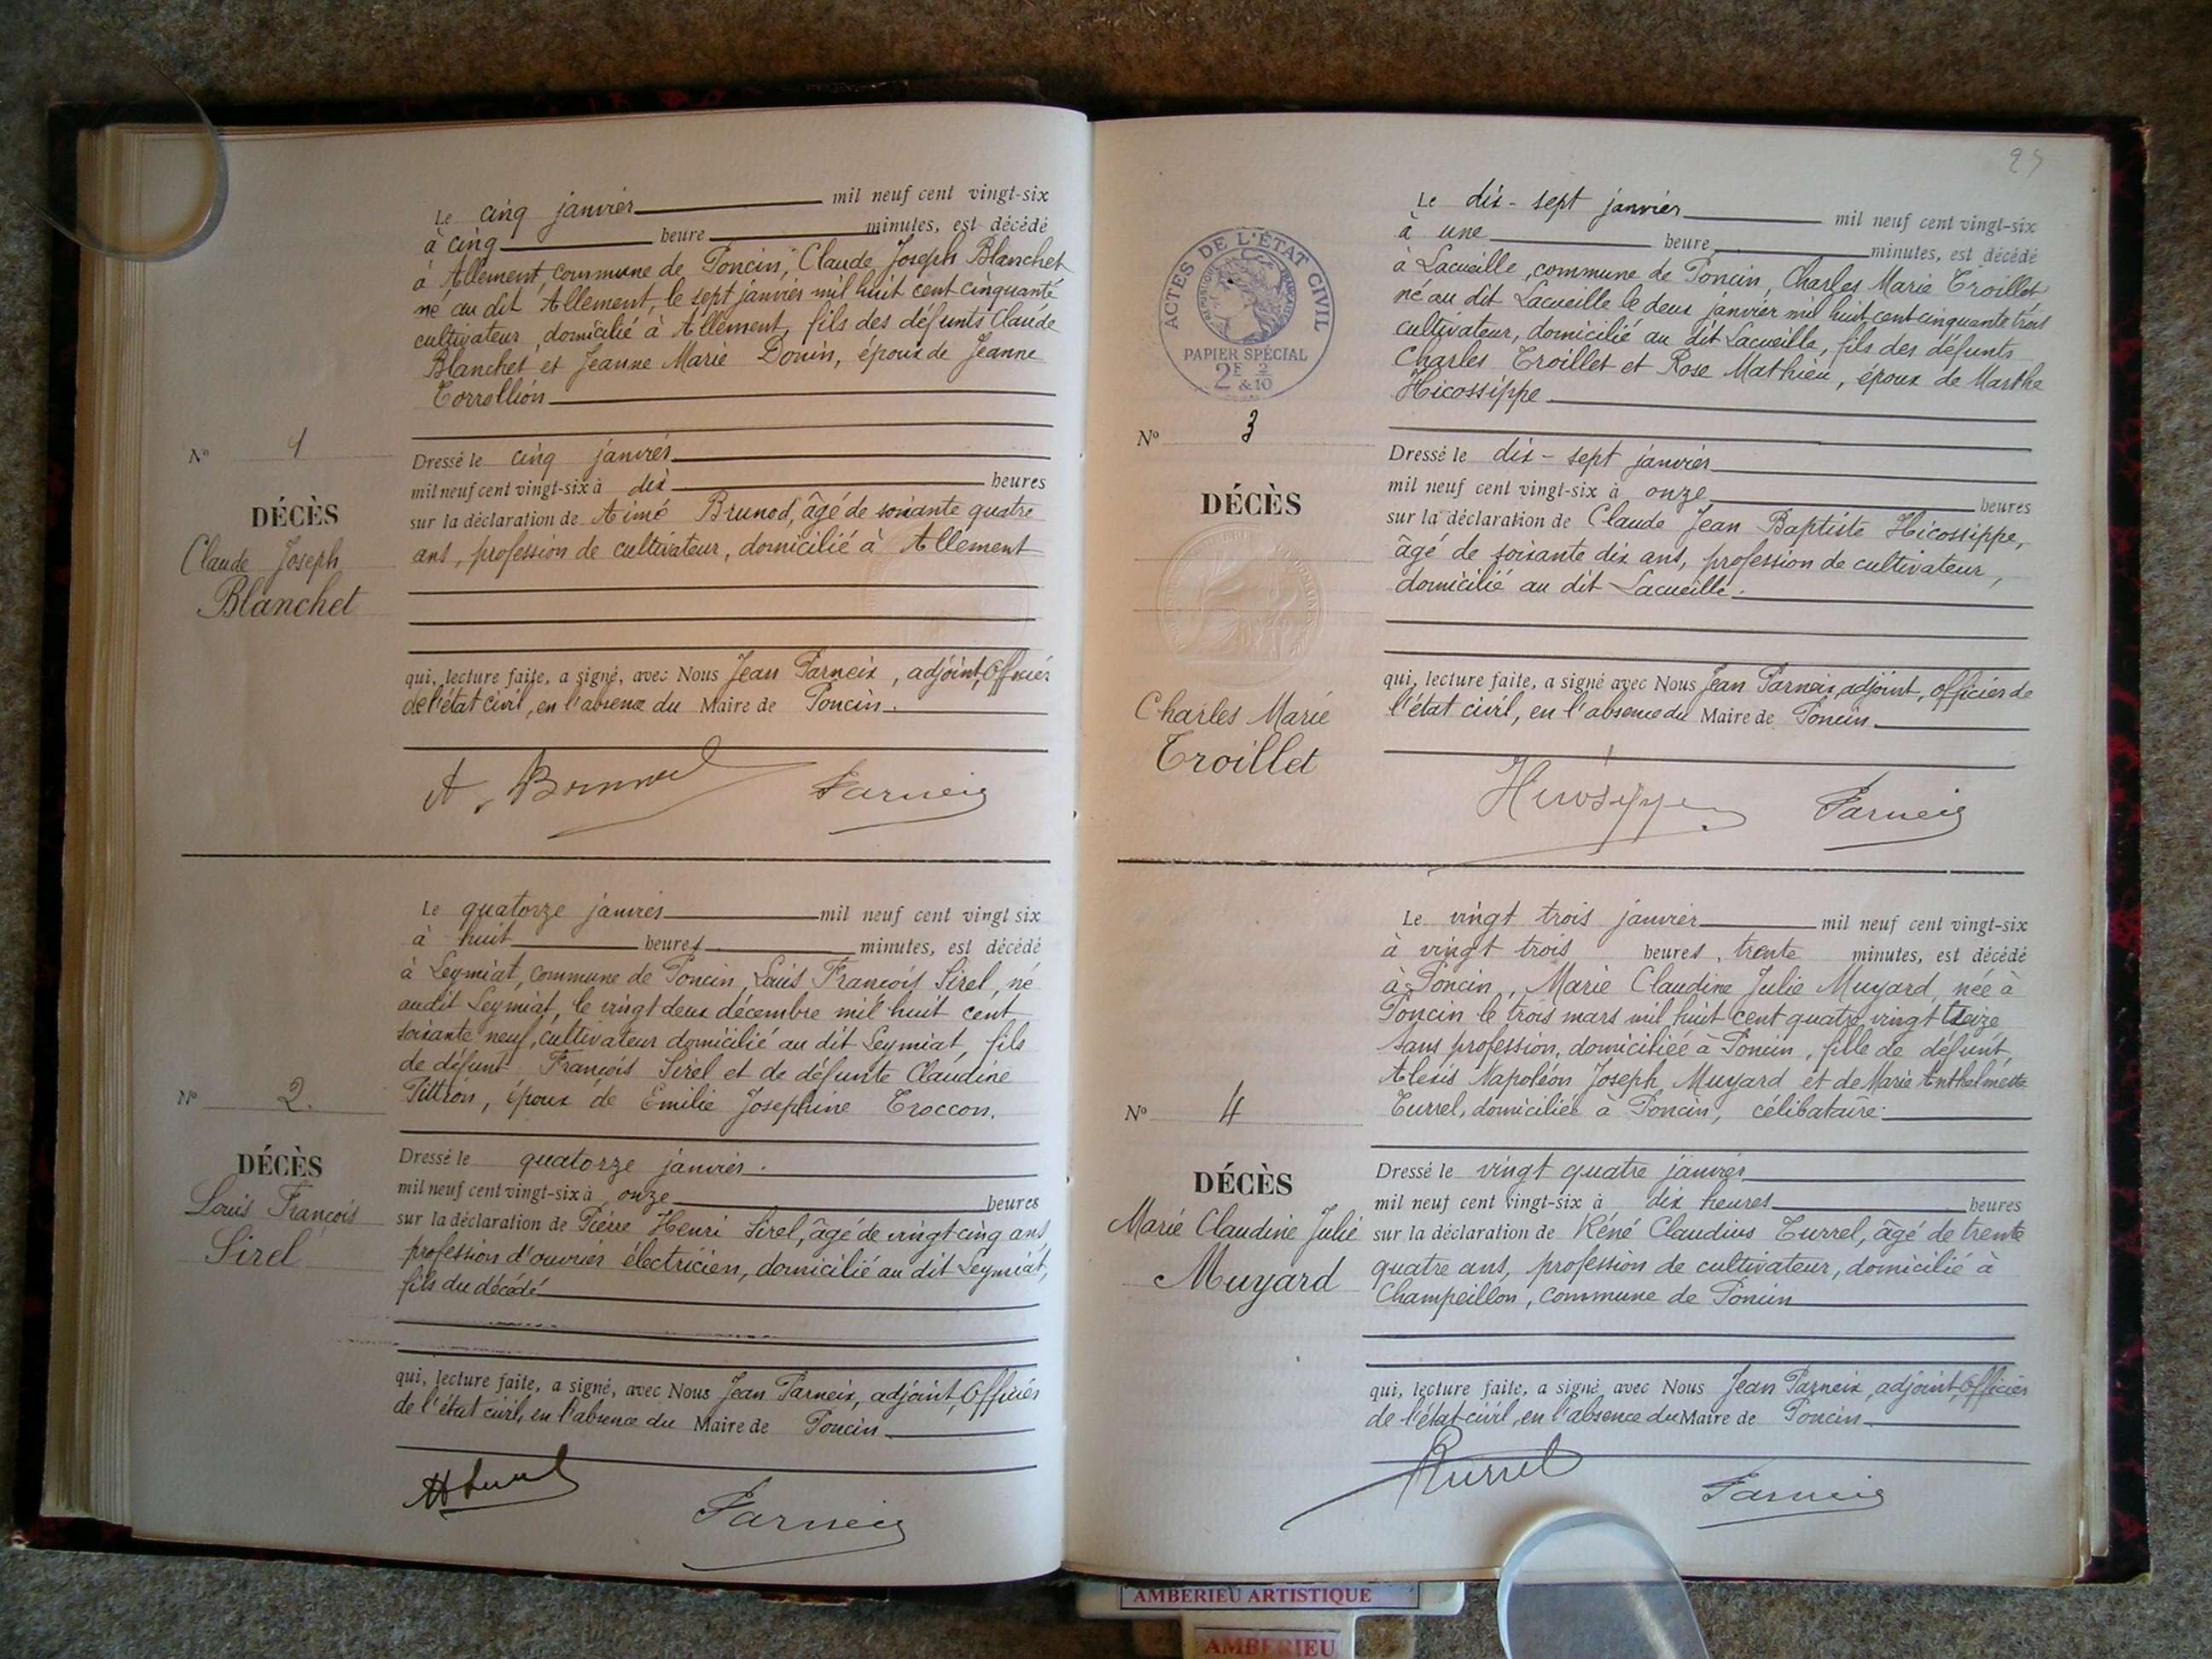 Le cinq janvier mil neuf cent vingt-six
à cinq heure minutes, est décédé
à Allement, commune de Poncin, Claude Joseph Blanchet
né au dit Allement, le sept janvier mil huit cent cinquante
cultivateur, domicilié à Allement, fils des défunts Claude
Blanchet et Jeanne Marie Donin, époux de Jeanne
Corrollion
N° 1
DÉCÈS
Claude Joseph
Blanchet
Dressé le cinq janvier
mil neuf cent vingt-six à dix heures
sur la déclaration de Aimé Brunod, âgé de soixante quatre
ans, profession de cultivateur, domicilié à Allement
qui, lecture faite, a signé, avec Nous Jean Parneix, adjoint, Officier
de l'état civil, en l'absence du Maire de Poncin.
A. Brunod Parneix
Le quatorze janvier mil neuf cent vingt six
à huit heures minutes, est décédé
à Leymiat, commune de Poncin, Louis François Sirel, né
audit Leymiat, le vingt deux décembre mil huit cent
soixante neuf, cultivateur domicilié au dit Leymiat, fils
de défunt François Sirel et de défunte Claudine
Pittion, époux de Emilie Joséphine Croccon.
N° 2.
DÉCÈS
Louis François
Sirel
Dressé le quatorze janvier.
mil neuf cent vingt-six à onze heures
sur la déclaration de Pierre Henri Sirel, âgé de vingt-cinq ans,
profession d'ouvrier électricien, domicilié au dit Leymiat,
fils du décédé
qui, lecture faite, a signé, avec Nous Jean Parneix, adjoint, Officier
de l'état civil, en l'absence du Maire de Poncin
Parneix
25
ACTES DE L'ÉTAT CIVIL
PAPIER SPÉCIAL
2F 2/10
& 10
Le dix-sept janvier mil neuf cent vingt-six
à une heure minutes, est décédé
à Lacueille, commune de Poncin, Charles Marie Troillet
né au dit Lacueille le deux janvier mil huit cent cinquante trois
cultivateur, domicilié au dit Lacueille, fils des défunts
Charles Troillet et Rose Mathieu, époux de Marthe
Hicossippe
N° 3
DÉCÈS
Charles Marie
Troillet
Dressé le dix-sept janvier
mil neuf cent vingt-six à onze heures
sur la déclaration de Claude Jean Baptiste Hicossippe,
âgé de soixante dix ans, profession de cultivateur,
domicilié au dit Lacueille.
qui, lecture faite, a signé avec Nous Jean Parneix, adjoint, officier de
l'état civil, en l'absence du Maire de Poncin
Parneix
Le vingt trois janvier mil neuf cent vingt-six
à vingt trois heures, trente minutes, est décédé
à Poncin, Marie Claudine Julie Muyard, née à
Poncin le trois mars mil huit cent quatre vingt treize
sans profession, domiciliée à Poncin, fille de défunt
Alexis Napoléon Joseph Muyard et de Marie Anthelmette
Turrel, domiciliée à Poncin, célibataire.
N° 4
DÉCÈS
Marie Claudine Julie
Muyard
Dressé le vingt quatre janvier
mil neuf cent vingt-six à dix heures heures
sur la déclaration de Réné Claudius Turrel, âgé de trente
quatre ans, profession de cultivateur, domicilié à
Champeillon, commune de Poncin
qui, lecture faite, a signé avec Nous Jean Parneix, adjoint, Officier
de l'état civil, en l'absence du Maire de Poncin
Turrel Parneix
AMBERIEU ARTISTIQUE
AMBERIEU